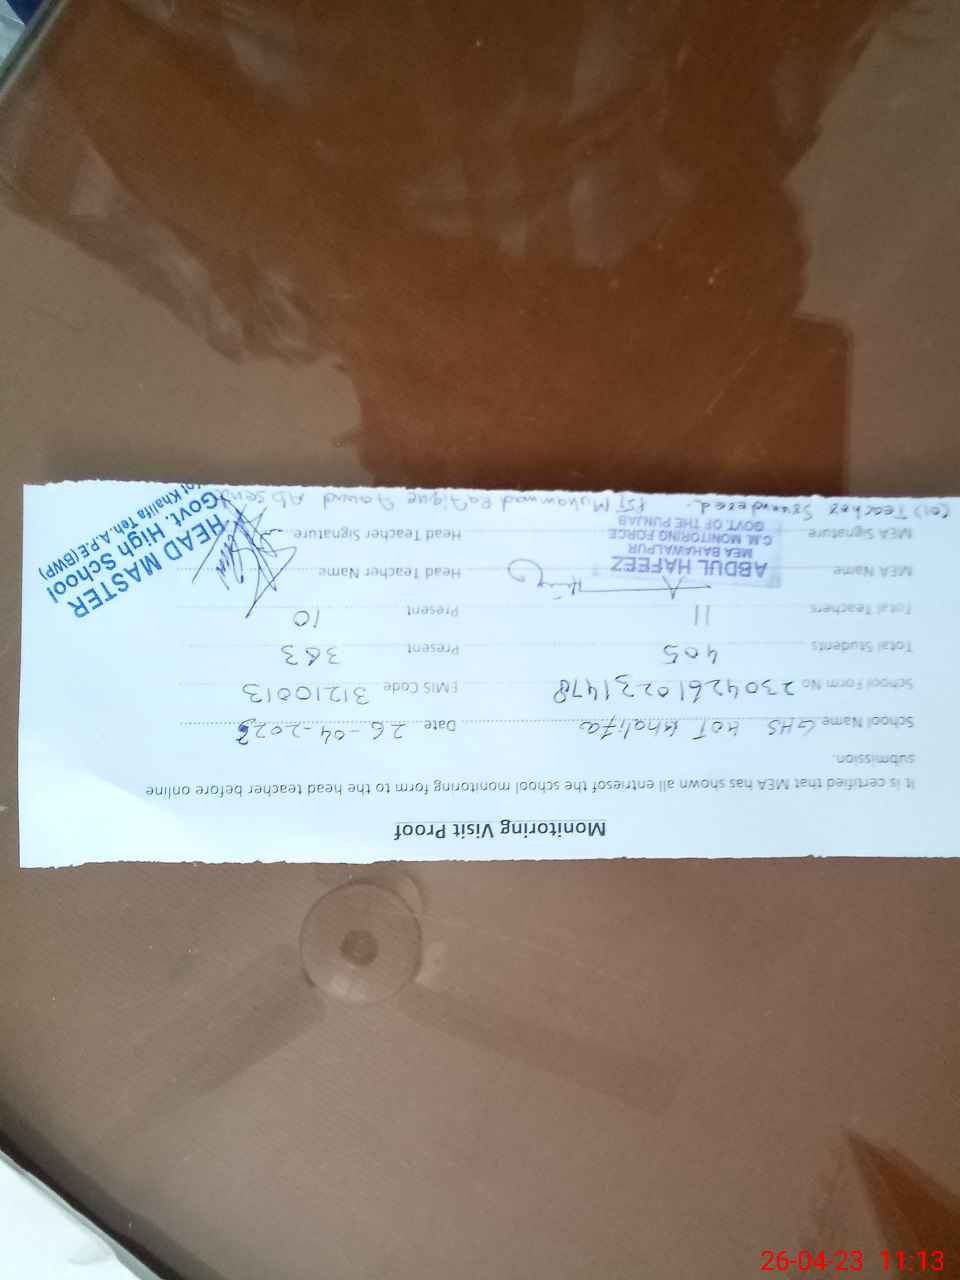 Monitoring Visit Proof
It is certified that MEA has shown all entriesof the school monitoring form to the head teacher before online
submission.
School Name GHS KOT Khalifa Date 26-04-2023
School Form No 2304261023 1478 EMIS Code 31210013
Total Students 405 Present 383
Total Teachers 11 Present 10
MEA Name Head Teacher Name
ABDUL HAFEEZ
MEA BAHAWALPUR
C.M. MONITORING FORCE
GOVT OF THE PUNJAB
MEA Signature Head Teacher Signature
HEAD MASTER
Govt. High School
Kot Khalifa Teh. A.P.E (BWP)
(01) Teacher PST Muhammad Rafique Found Absent
26-04-23 11:13